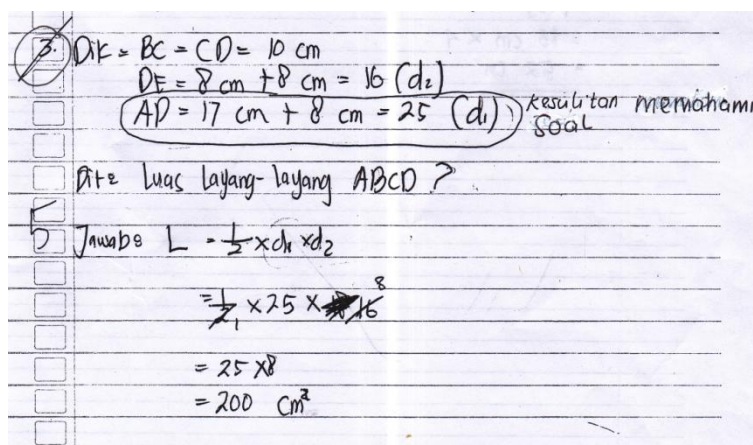 3. Dik = BC = CD = 10 cm
DE = 8 cm + 8 cm = 16 (d₂)
AD = 17 cm + 8 cm = 25 (d₁) kesulitan memahami soal
Dit = Luas layang-layang ABCD ?
5
Jawab = L = 1/2 × d₁ × d₂
= 1/2 1 × 25 × 16 8
= 25 × 8
= 200 cm²